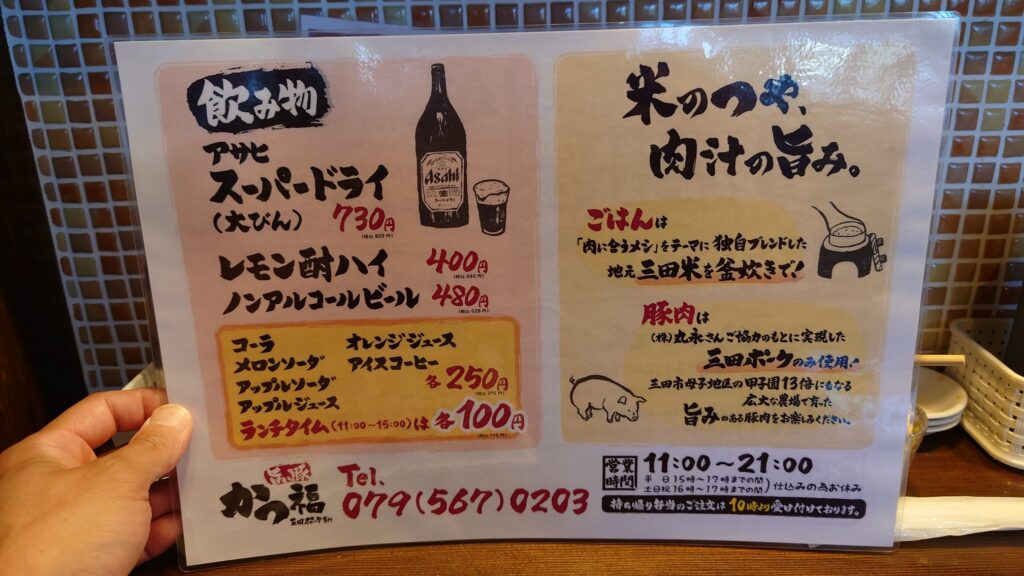 飲み物
アサヒ
スーパードライ
(大びん) 730円
(税込 803円)
レモン酎ハイ 400円
(税込 440円)
ノンアルコールビール 480円
(税込 528円)
コーラ オレンジジュース
メロンソーダ アイスコーヒー
アップルソーダ 各250円
(税込 275円)
アップルジュース
ランチタイム(11:00〜15:00)は各100円
(税込 110円)
Asahi
生
スーパードライ
米のつや、
肉汁の旨み。
ごはんは
「肉に合うメシ」をテーマに独自ブレンドした
地元三田米を釜炊きで!
豚肉は
(株)丸永さんご協力のもとに実現した
三田ポークのみ使用!
三田市母子地区の甲子園13倍にもなる
広大な農場で育った
旨みのある豚肉をお楽しみください。
かつ福
三田ポーク専門
Tel.
079(567)0203
営業時間 11:00〜21:00
平 日 15時〜17時までの間
土日祝 16時〜17時までの間)仕込みの為お休み
持ち帰り弁当のご注文は10時より受け付けております。